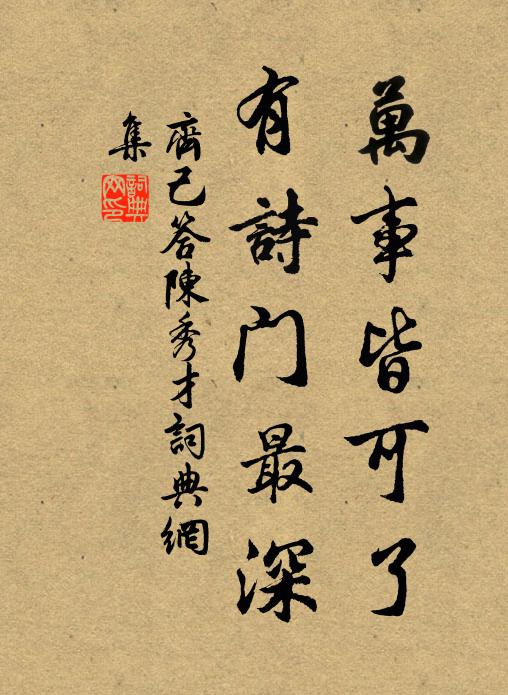 萬事皆可了
有詩門最深
齊己答陳秀才詞典網
集
詞典
网印